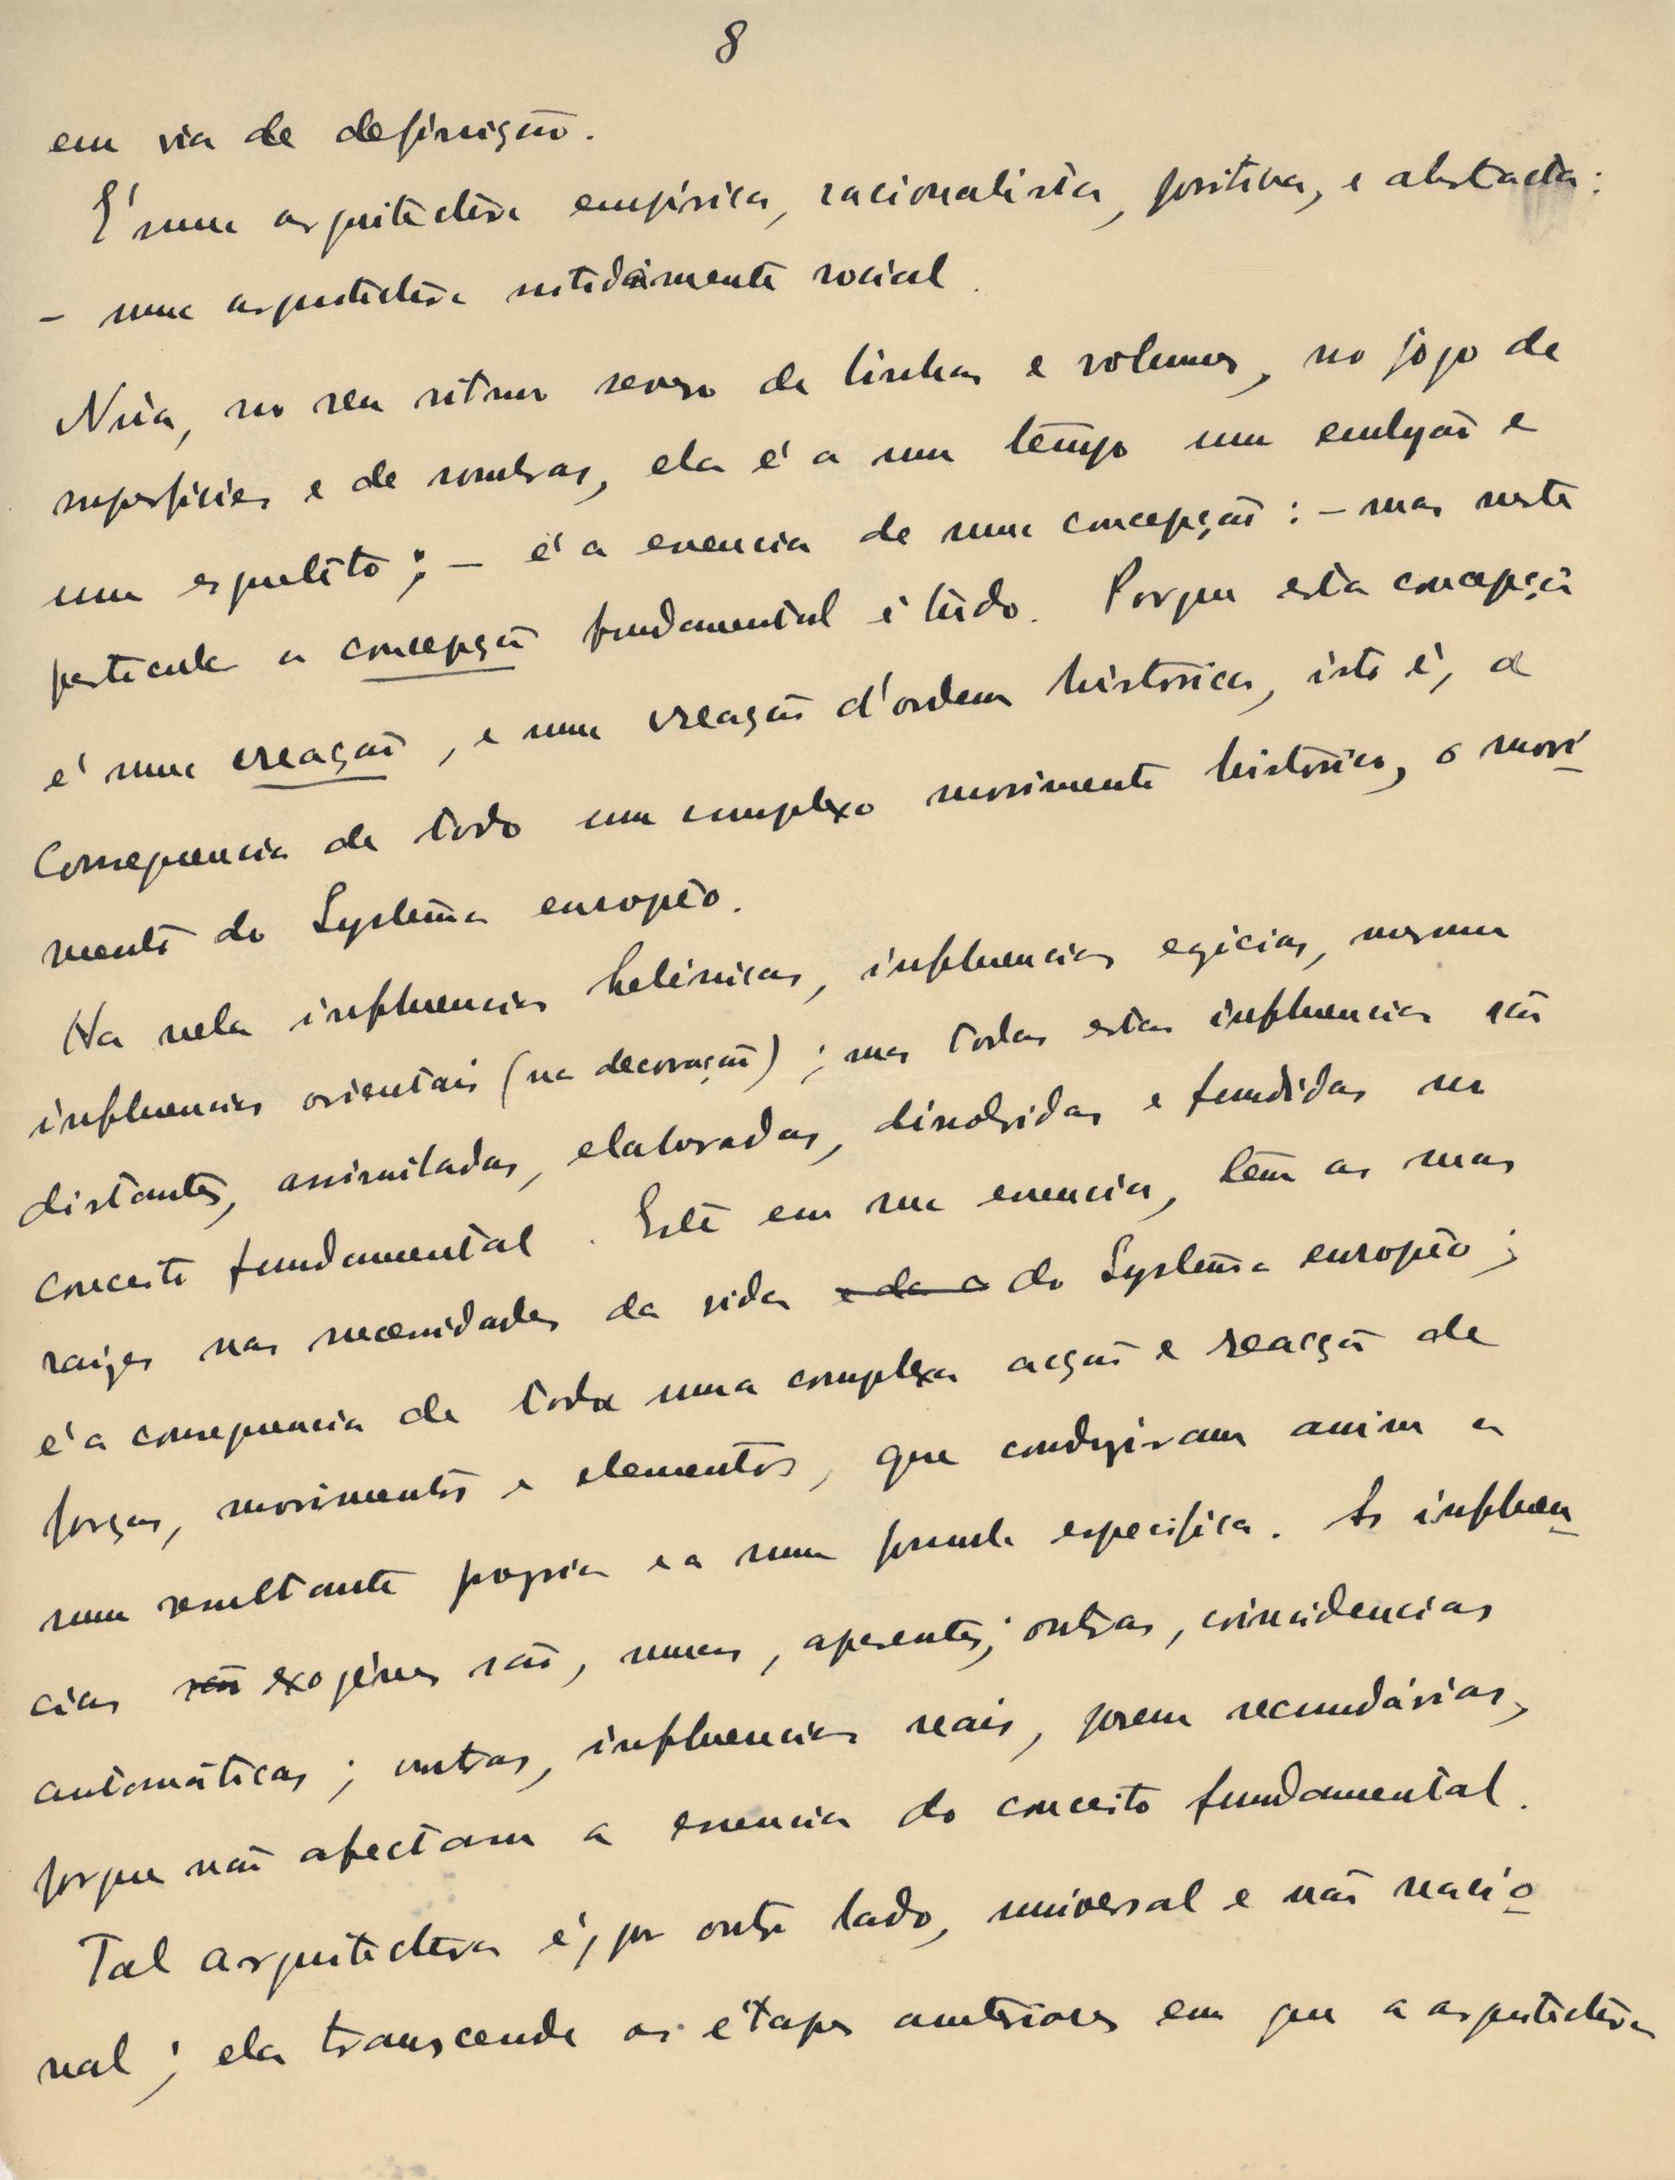 8
em via de definição.
É uma arquitectura empírica, racionalista, positiva, e abstracta:
- uma arquitectura nitidamente social.
Núa, no seu ritmo severo de linhas e volumes, no jogo de
superficies e de sombras, ela é a um tempo um embrião e
um esqueleto; - é a essencia de uma concepção: - mas neste
particular a concepção fundamental é tudo. Porque esta concepção
é uma creação, e uma creação d'ordem historica, isto é, a
consequencia de todo um complexo movimento historico, o movi
mento do Systema europeo.
Ha nela influencias helénicas, influencias egícias, mesmo
influencias orientais (na decoração); mas todas estas influencias são
distantes, assimiladas, elaboradas, dissolvidas e fundidas no
conceito fundamental. Este em sua essencia, tem as suas
raizes nas necessidades da vida e da do Systema europeo;
é a consequencia de toda uma complexa acção e reacção de
forças, movimentos e elementos, que conduziram assim a
uma resultante propria e a uma formula especifica. As influen
cias são exogénas são, umas, aparentes; outras, coincidencias
automáticas; outras, influencias reais, porem secundárias,
porque não afectam a essencia do conceito fundamental.
Tal arquitectura é, por outro lado, universal e não nacio
nal; ela transcende as étapes anteriores em que a arquitectura